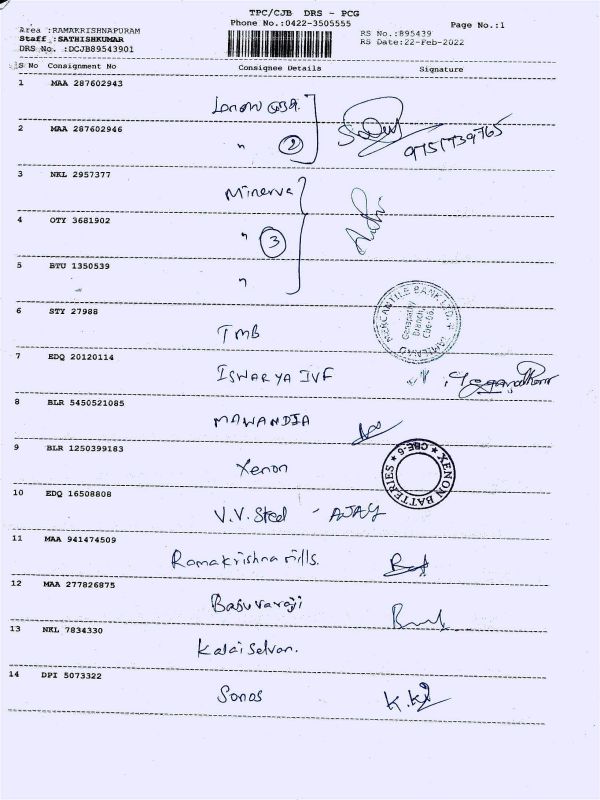 TPC/CJB DRS - PCG
Phone No.:0422-3505555
Page No.:1
Area :RAMAKRISHNAPURAM
Staff :SATHISHKUMAR
DRS No. :DCJB89543901
RS No.:895439
RS Date:22-Feb-2022
S No Consignment No Consignee Details Signature
1 MAA 287602943
2 MAA 287602946
" 2
9751739765
3 NKL 2957377
Minerva
4 OTY 3681902
" 3
5 BTU 1350539
"
6 STY 27988
TMB
TAMILNAD MERCANTILE BANK LTD.
Ganapathy
Branch,
7 EDQ 20120114
ISWARYA IVF
8 BLR 5450521085
MAWANDIA
9 BLR 1250399183
Xenon
XENON BATTERIES ★ CBE-6 ★
10 EDQ 16508808
V.V. Steel - AJAY
11 MAA 941474509
Ramakrishna mills.
12 MAA 277826875
Babuvaraji
13 NKL 7834330
Kalaiselvan.
14 DPI 5073322
Sonas